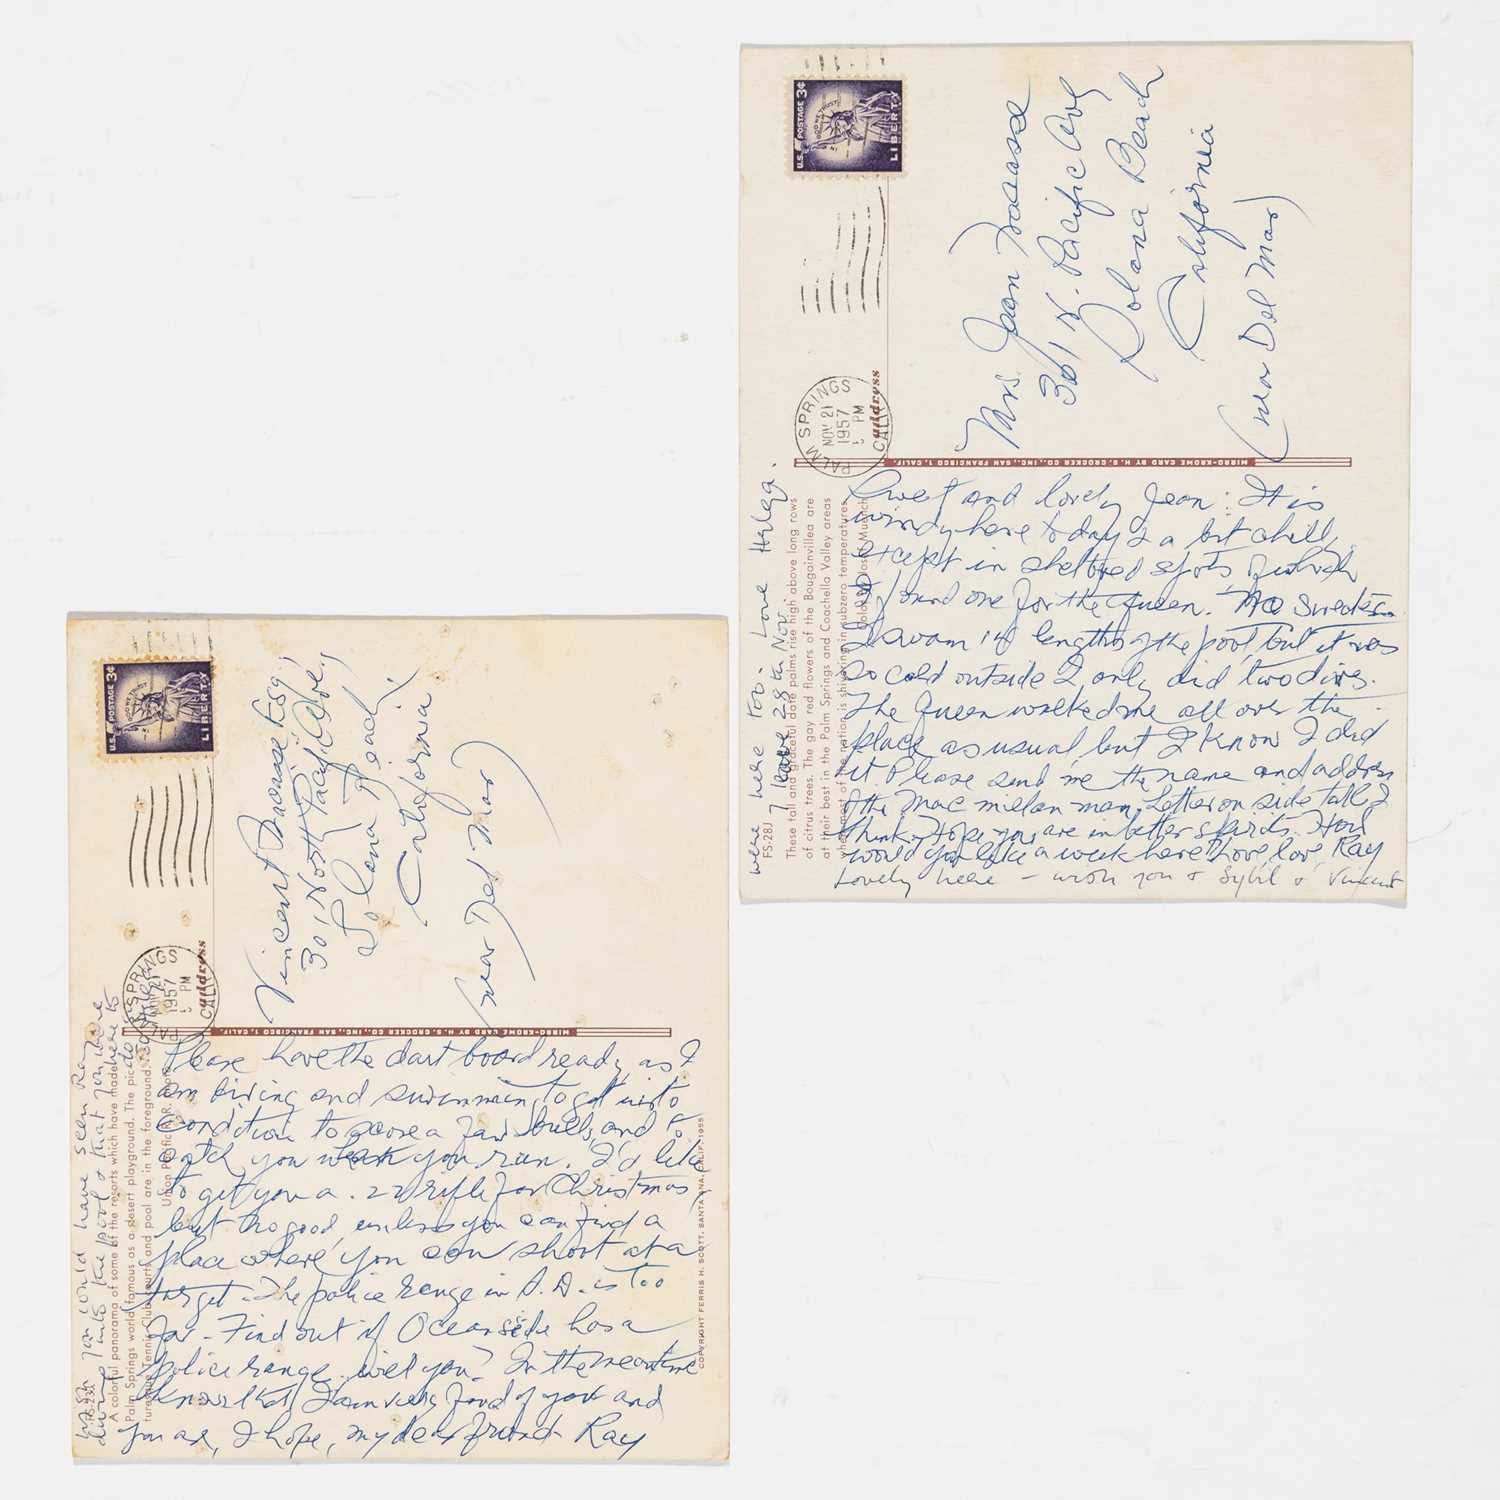 U.S. POSTAGE 3¢
IN GOD WE TRUST
LIBERTY
PALM SPRINGS
NOV 21
PM
1957
CALIF.
address
Mrs. Jean
301 N. Pacific Ave
Solana Beach
California
(near Del Mar)
MIRRO-KROME CARD BY H. S. CROCKER CO., INC., SAN FRANCISCO 1, CALIF.
Sweet and lovely Jean: It is
windy here today & a bit chilly
except in sheltered spots of which
I found one for the Queen. No sweater
I swam 14 lengths of the pool, but it was
so cold outside I only did two dives.
The Queen walked me all over the
place as usual, but I know I did
it. Please send me the name and address
of the Macmillan man. Letter on side table I
think. Hope you are in better spirits. How
would you like a week here? Love, love, Ray
Lovely here – wish you & Sybil & Vincent
were here too. Love Helga.
I leave 28th Nov.
FS-28J
These tall and graceful date palms rise high above long rows
of citrus trees. The gay red flowers of the Bougainvillea are
at their best in the Palm Springs and Coachella Valley areas
when most of the nation is shivering in subzero temperatures.
Color by Josef Muench
U.S. POSTAGE 3¢
IN GOD WE TRUST
LIBERTY
PALM SPRINGS
NOV 21
PM
1957
CALIF.
address
Vincent Esq.
301 North Pacific Ave,
Solana Beach,
California
(near Del Mar)
MIRRO-KROME CARD BY H. S. CROCKER CO., INC., SAN FRANCISCO 1, CALIF.
Please have the dart board ready, as I
am diving and swimming to get into
condition to score a few bulls, and to
catch you when you run. I'd like
to get you a .22 rifle for Christmas,
but no good, unless you can find a
place where you can shoot at a
target. The police range in S.D. is too
far – Find out if Oceanside has a
police range, will you? In the meantime
know that I am very fond of you and
you are, I hope, my dear friend – Ray
wish you could have seen Ray
diving into the pool & that you were
here to
do
A colorful panorama of some of the resorts which have made
Palm Springs world famous as a desert playground. The
Tennis Club courts and pool are in the foreground.
Union Pacific R.R.
COPYRIGHT FERRIS H. SCOTT, SANTA ANA, CALIF. 1955